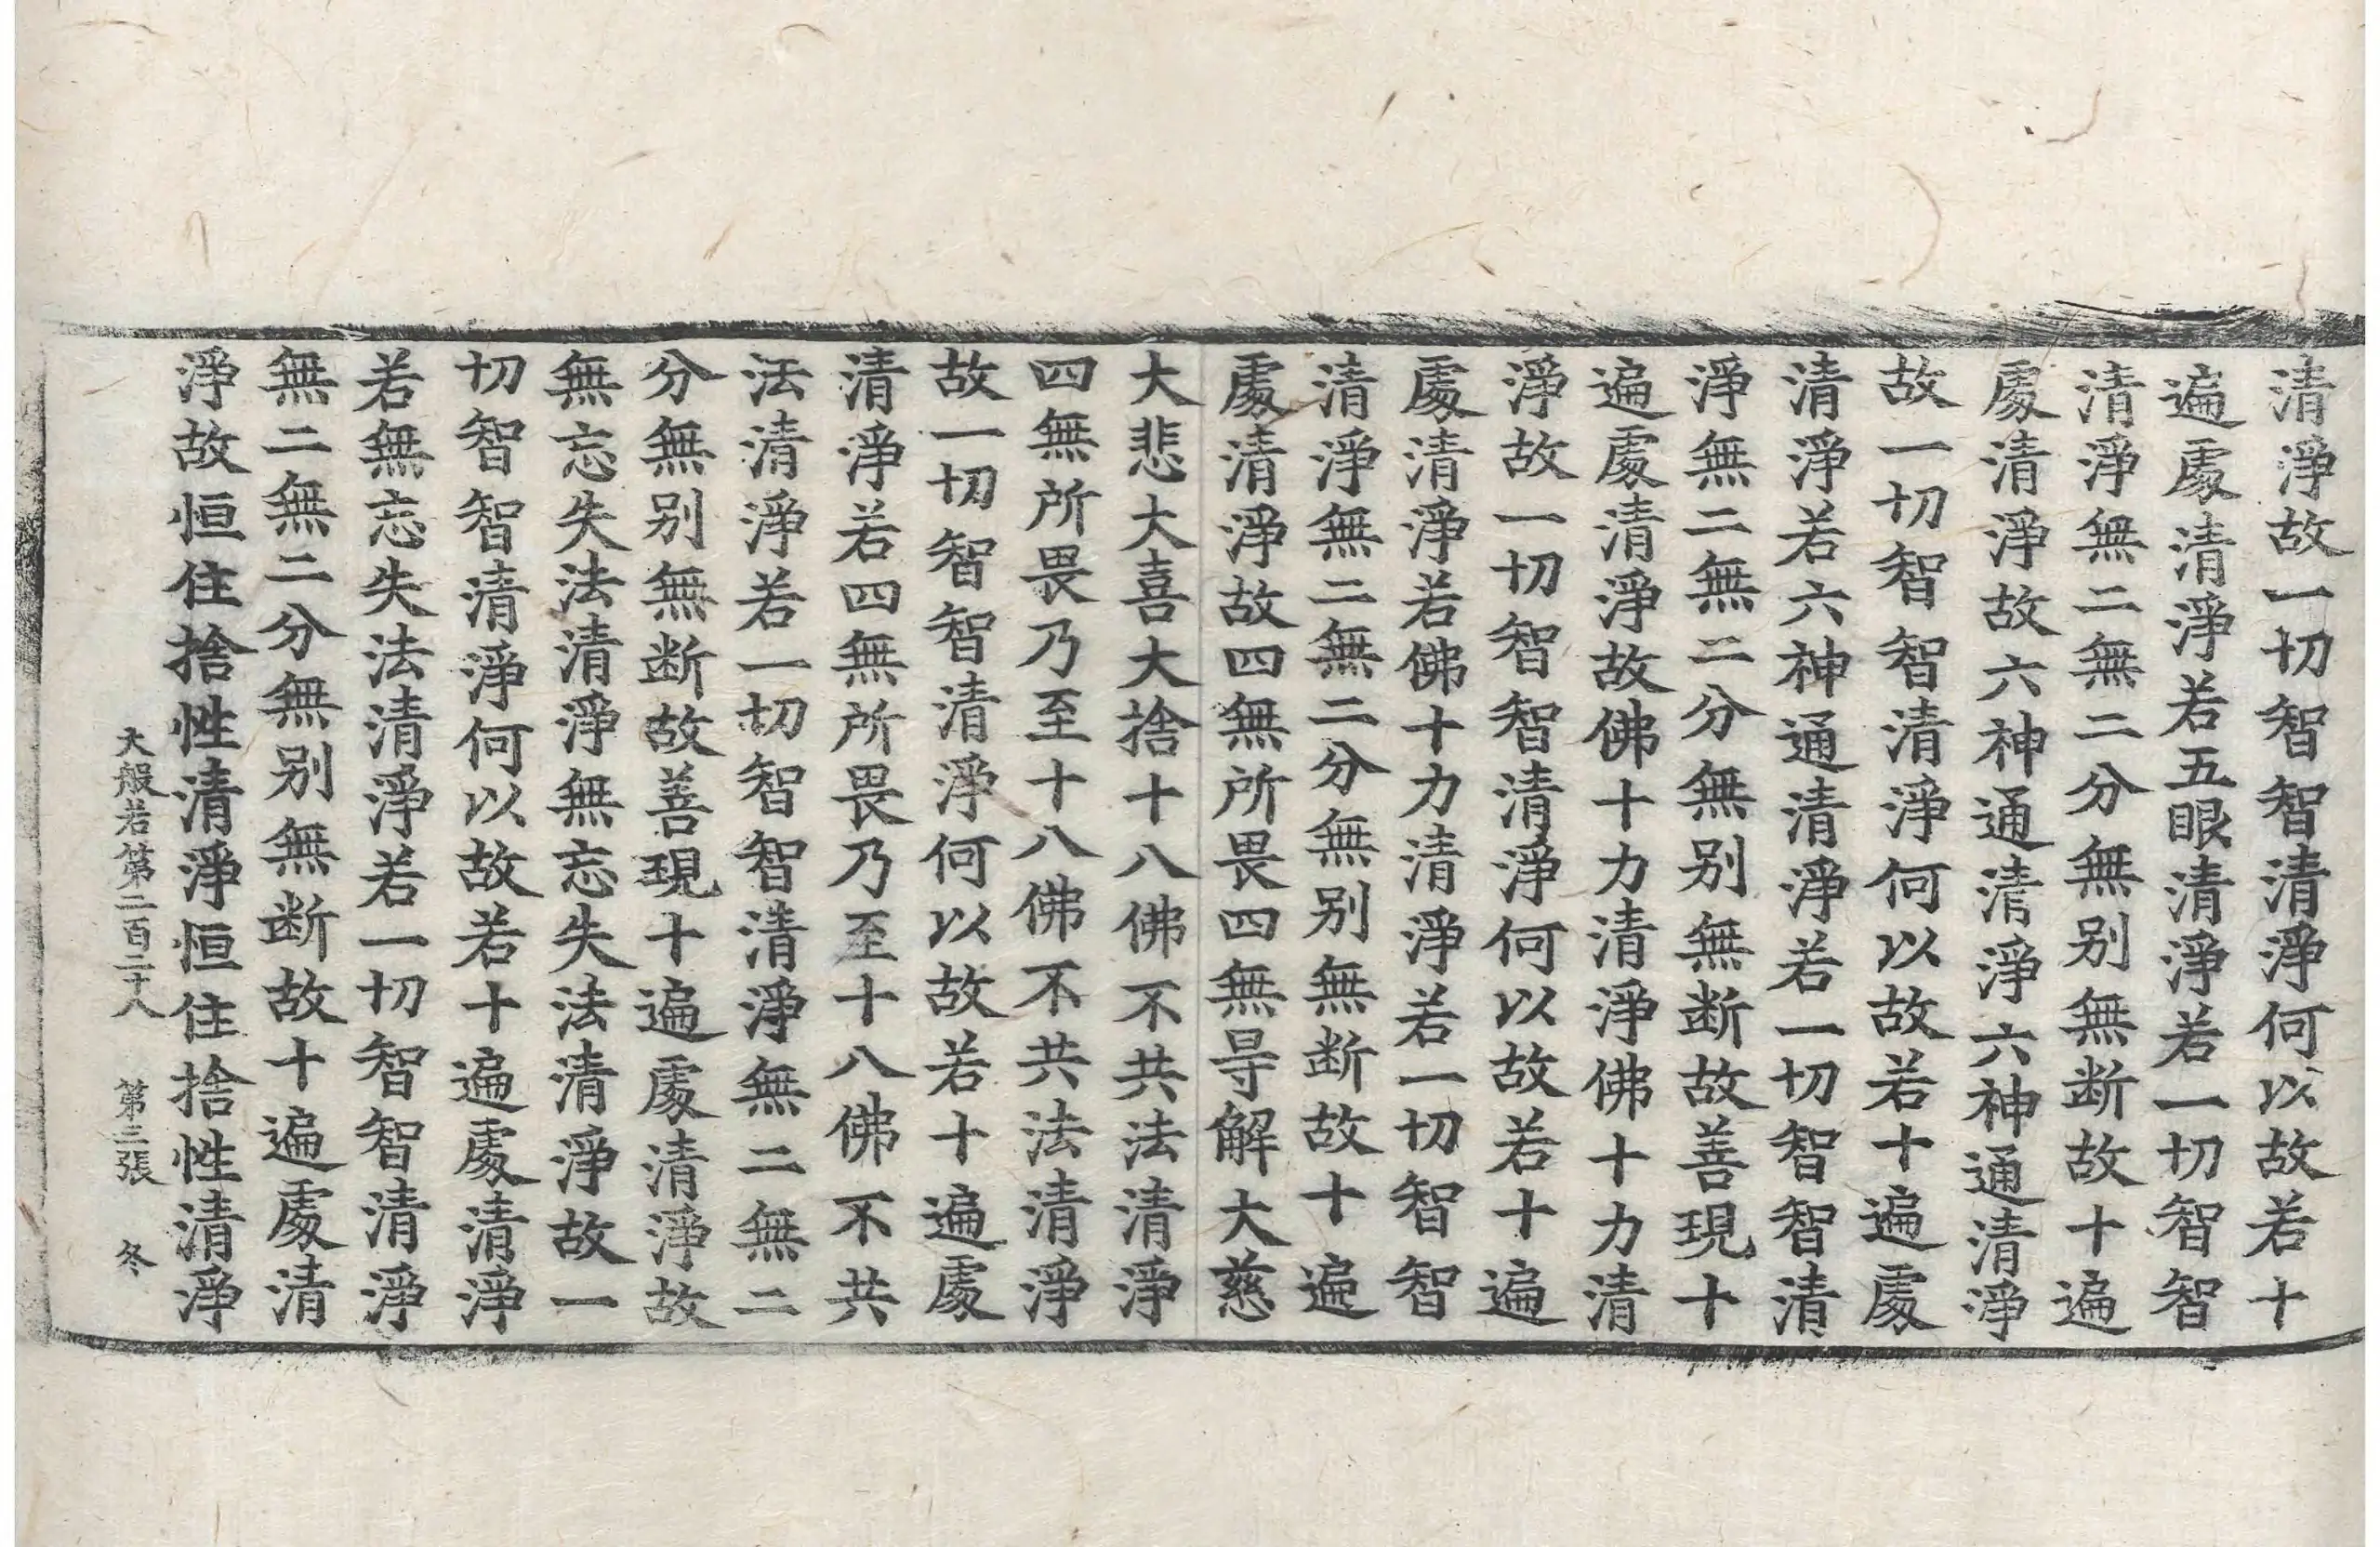 清淨故一切智智清淨何以故若十
遍處清淨若五眼清淨若一切智智
清淨無二無二分無别無断故十遍
處清淨故六神通清淨六神通清淨
故一切智智清淨何以故若十遍處
清淨若六神通清淨若一切智智清
淨無二無二分無别無断故善現十
遍處清淨故佛十力清淨佛十力清
淨故一切智智清淨何以故若十遍
處清淨若佛十力清淨若一切智智
清淨無二無二分無别無断故十遍
處清淨故四無所畏四無㝵解大慈
大悲大喜大捨十八佛不共法清淨
四無所畏乃至十八佛不共法清淨
故一切智智清淨何以故若十遍處
清淨若四無所畏乃至十八佛不共
法清淨若一切智智清淨無二無二
分無别無断故善現十遍處清淨故
無忘失法清淨無忘失法清淨故一
切智智清淨何以故若十遍處清淨
若無忘失法清淨若一切智智清淨
無二無二分無别無断故十遍處清
淨故恒住捨性清淨恒住捨性清淨
大般若第二百二十八 第三張 冬